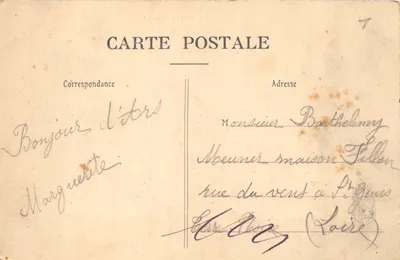 CARTE POSTALE
Correspondance
Adresse
Bonjour d'Ars
Marguerite.
Monsieur Barthelemy
Meunier maison Fillon
rue du vent à St
(Loire)